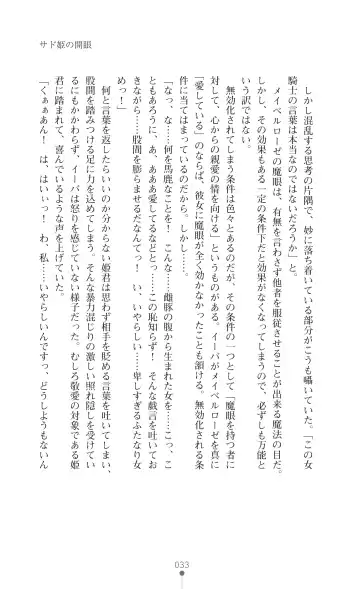 サド姫の開眼
しかし混乱する思考の片隅で、妙に落ち着いている部分がこうも囁いていた。「この女
騎士の言葉は本当なのではないだろうか」と。
メイベルローゼの魔眼は、有無を言わさず他者を服従させることが出来る魔法の目だ。
しかし、その効果もある一定の条件下だと効果がなくなってしまうので、必ずしも万能と
いう訳ではない。
無効化されてしまう条件は色々とあるのだが、その条件の一つとして「魔眼を持つ者に
対して、心からの親愛の情を向ける」というものがある。イーパがメイベルローゼを真に
「愛している」のならば、彼女に魔眼が全く効かなかったことも頷ける。無効化される条
件に当てはまっているのだから。しかし……。
「なっ、な……何を馬鹿なことを！　こんな……雌豚の腹から生まれた女を……こっ、こ
ともあろうに、あ、あああ愛してるなどとっ……この恥知らず！　そんな戯言を吐いてお
きながら……股間を膨らませるだなんてっ！　い、いやらしい……卑しすぎるふたなり女
めっ！」
何と言葉を返したらいいのか分からない姫君は思わず相手を貶める言葉を吐いてしまい、
股間を踏みつける足に力を込めてしまう。そんな暴力混じりの激しい照れ隠しを受けてい
るにもかかわらず、イーパは怒りを感じていない様子だった。むしろ敬愛の対象である姫
君に踏まれて、喜んでいるような声を上げていた。
「くぁぁあん！　は、はいぃっ！　わ、私……いやらしいんですっ、どうしようもないん
033